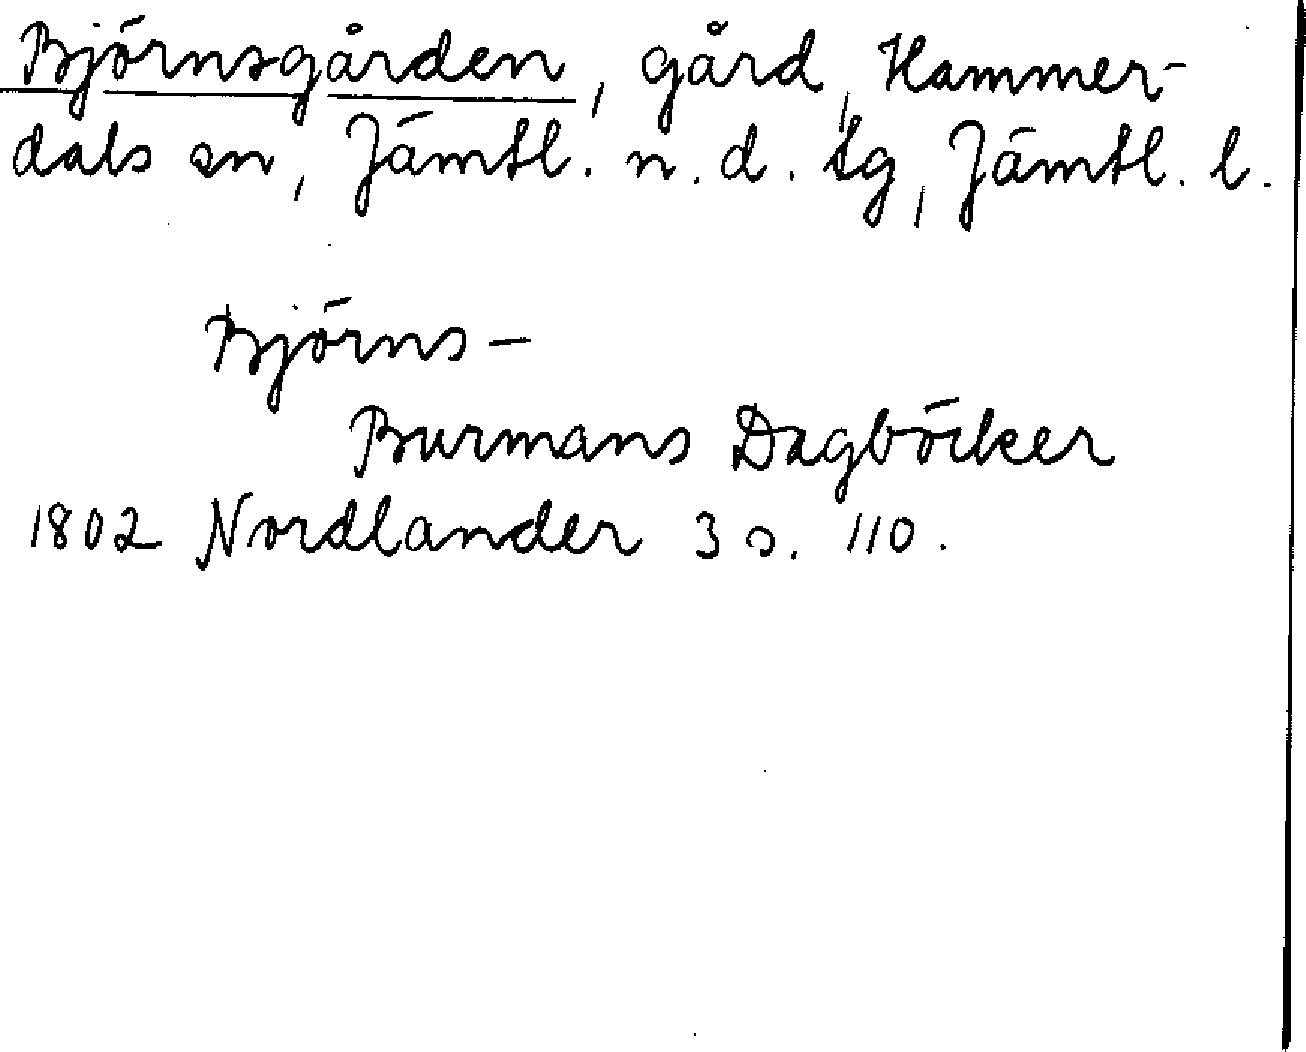 Björnsgården, gård, Hammer-
dals sn, Jämtl. n. d. tg, Jämtl. l.
Björns-
Burmans Dagböcker
1802 Nordlander 3 s. 110.